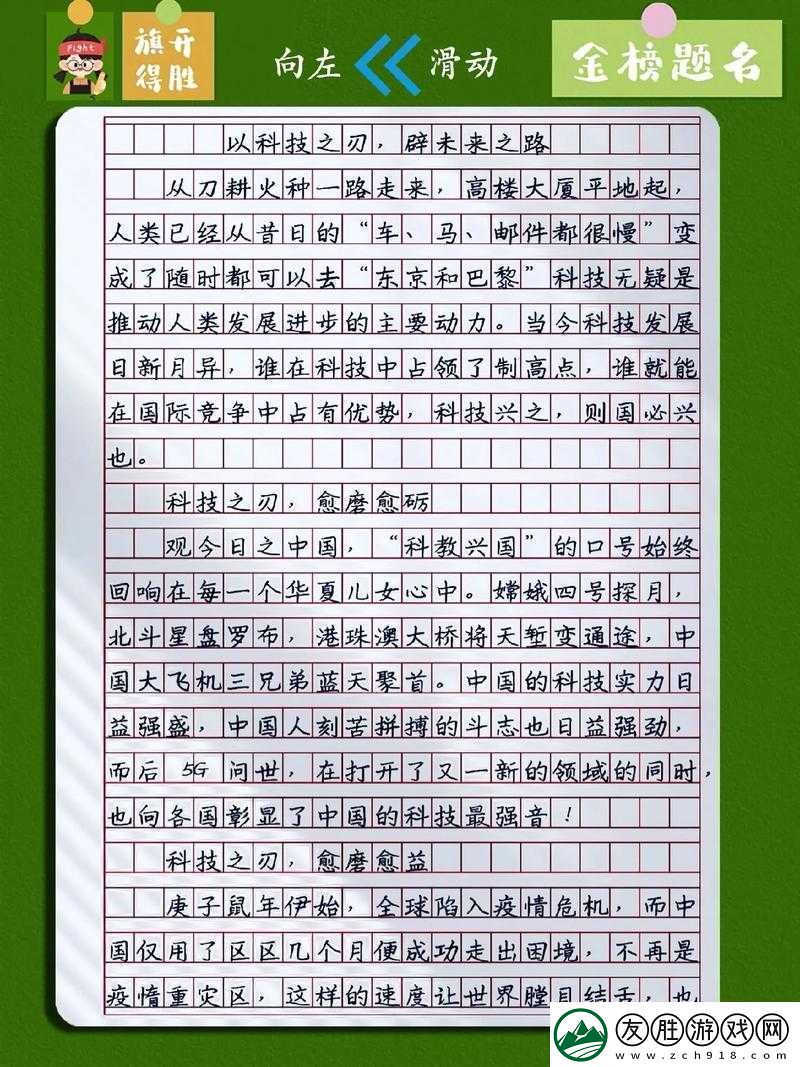 Fight
旗开
得胜
向左
滑动
金榜题名
以科技之刃，辟未来之路
从刀耕火种一路走来，高楼大厦平地起，
人类已经从昔日的“车、马、邮件都很慢”变
成了随时都可以去“东京和巴黎”科技无疑是
推动人类发展进步的主要动力。当今科技发展
日新月异，谁在科技中占领了制高点，谁就能
在国际竞争中占有优势，科技兴之，则国必兴
也。
科技之刃，愈磨愈砺
观今日之中国，“科教兴国”的口号始终
回响在每一个华夏儿女心中。嫦娥四号探月，
北斗星盘罗布，港珠澳大桥将天堑变通途，中
国大飞机三兄弟蓝天聚首。中国的科技实力日
益强盛，中国人刻苦拼搏的斗志也日益强劲，
而后5G问世，在打开了又一新的领域的同时，
也向各国彰显了中国的科技最强音！
科技之刃，愈磨愈益
庚子鼠年伊始，全球陷入疫情危机，而中
国仅用了区区几个月便成功走出困境，不再是
疫情重灾区，这样的速度让世界瞠目结舌，也
友胜游戏网
www.zch918.com